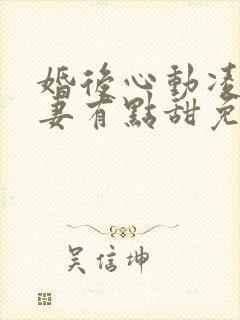 婚後心動凌
妻有點甜免
吳信坤